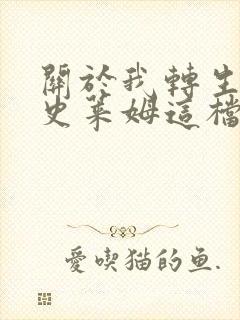 關於我轉生
史萊姆這檔
愛喫猫的鱼.